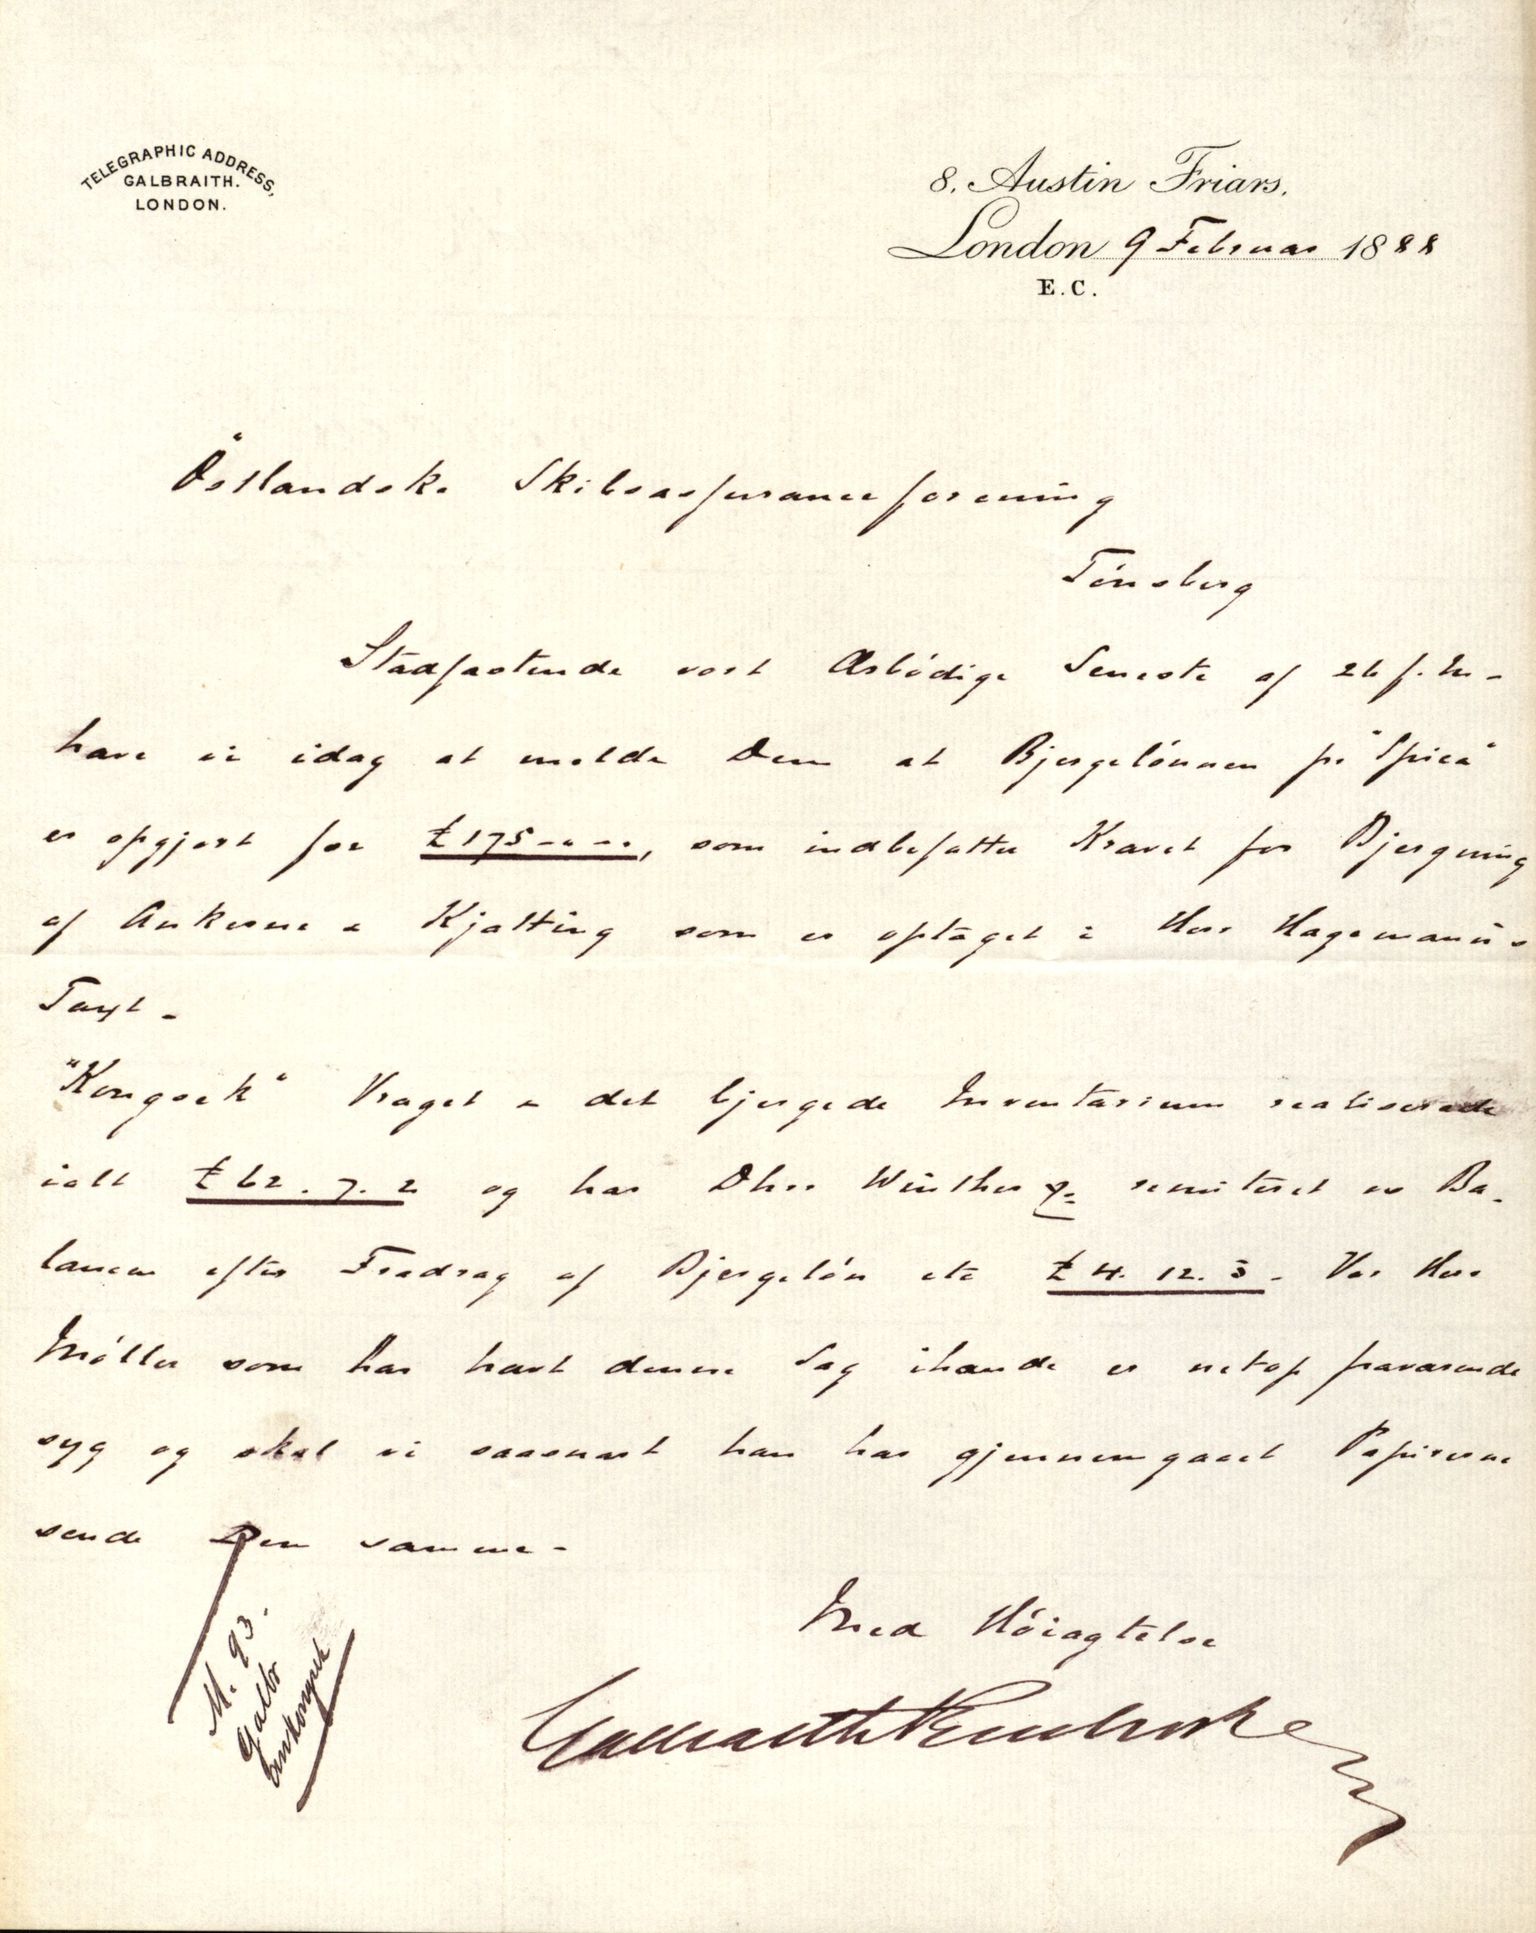 TELEGRAPHIC ADDRESS,
GALBRAITH.
LONDON.
8. Austin Friars.
London 9 Februar 1888
E.C.
Östlandske Skibsassuranceforening
Tönsberg
Stadfæstende vort Ærbödige Seneste af 26 f. M-
have vi idag at melde Dem at Bjergelönnen pr "Spica"
er opgjort for £175-"-"-, som indbefatter Kravet for Bjergning
af Ankerne & Kjætting som er optaget i Herr Hagemann's
Taxt-
"Kongsek" Vraget & det bjergede Inventarium realiserede
ialt £62.7.2 og har Dhrr Winther remiteret os Ba-
lancen efter Fradrag af Bjergelön etc £4.12.3- Vor Herr
Möller som har havt denne Sag ihænde er netop fraværende
syg og skal vi saasnart han har gjennemgaaet Papirerne
sende Dem samme-
Med Höiagtelse
Galbraith Pembroke
M. 93.
Galbr